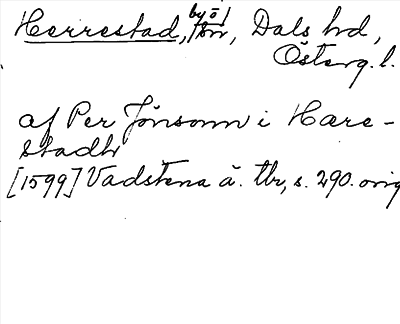 Herrestad, by ö sn, Dals hd,
Österg. l.
af Per Jönsonn i Hære-
stadh
[1599] Vadstena ä. tb, s. 290. orig